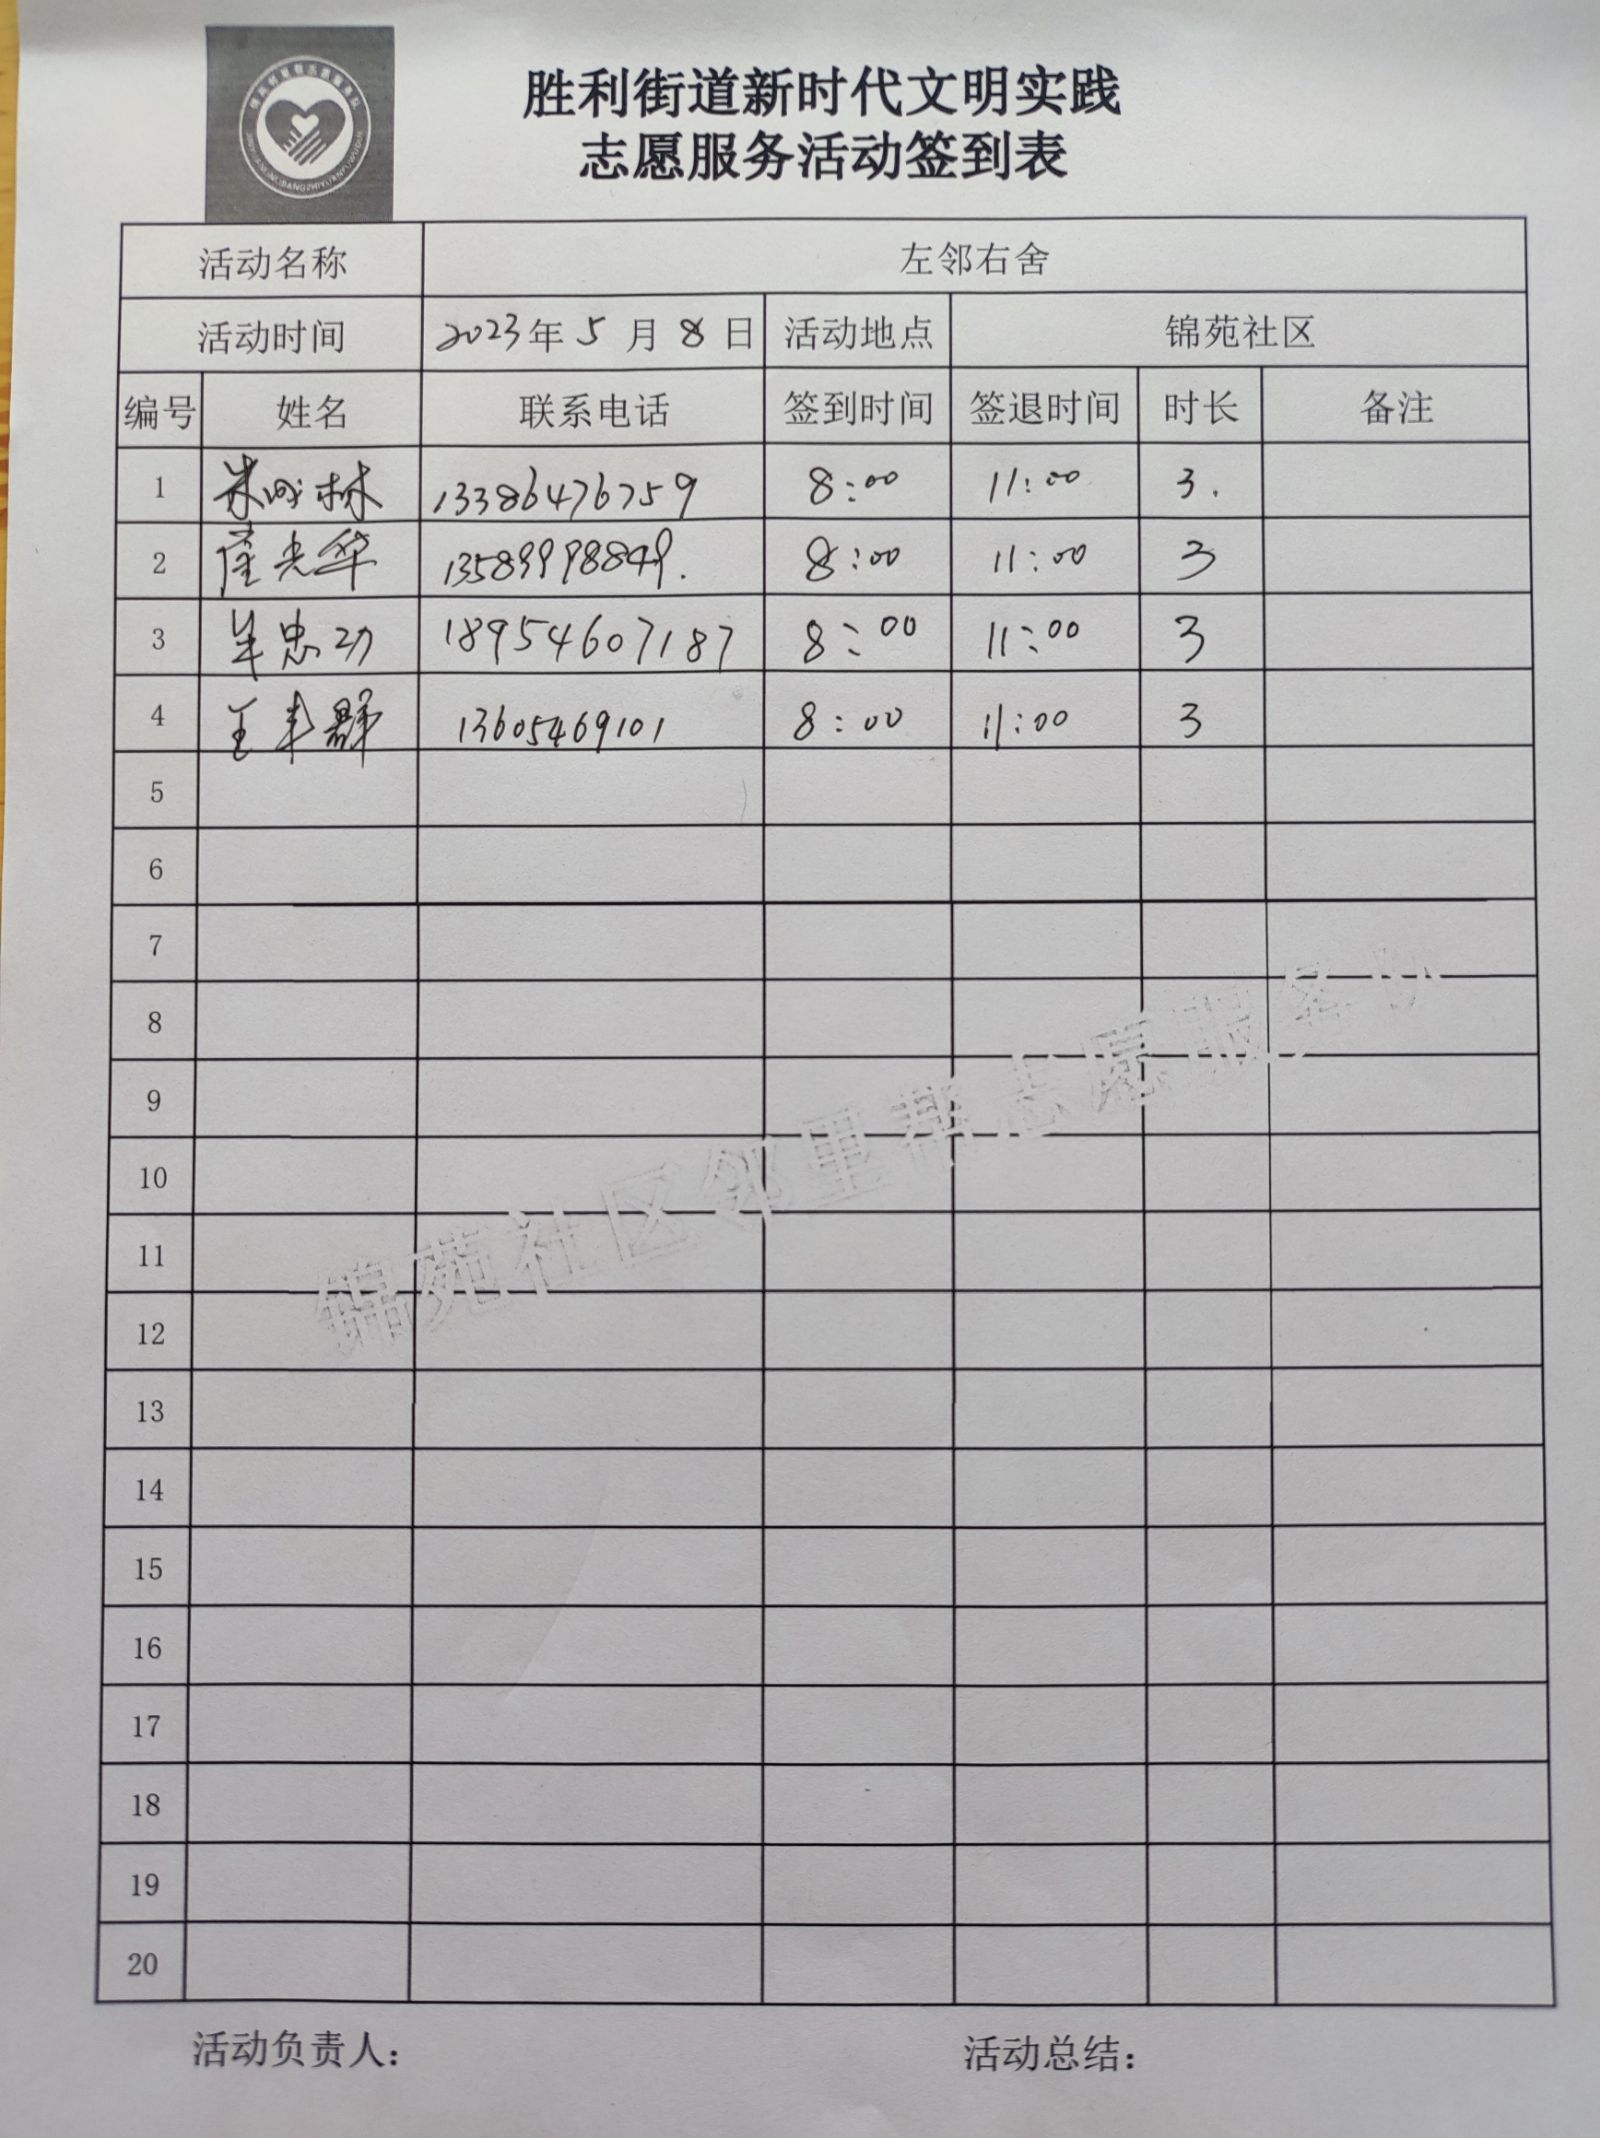 胜利街道新时代文明实践
志愿服务活动签到表
活动名称 左邻右舍
活动时间 2023年5月8日 活动地点 锦苑社区
编号 姓名 联系电话 签到时间 签退时间 时长 备注
1 13386476759 8:00 11:00 3.
2 崔光华 13589998849. 8:00 11:00 3
3 牟忠功 18954607187 8:00 11:00 3
4 王丰群 13605469101 8:00 11:00 3
5
6
7
8
9
10
11
12
13
14
15
16
17
18
19
20
锦苑社区邻里帮志愿服务队
活动负责人: 活动总结: